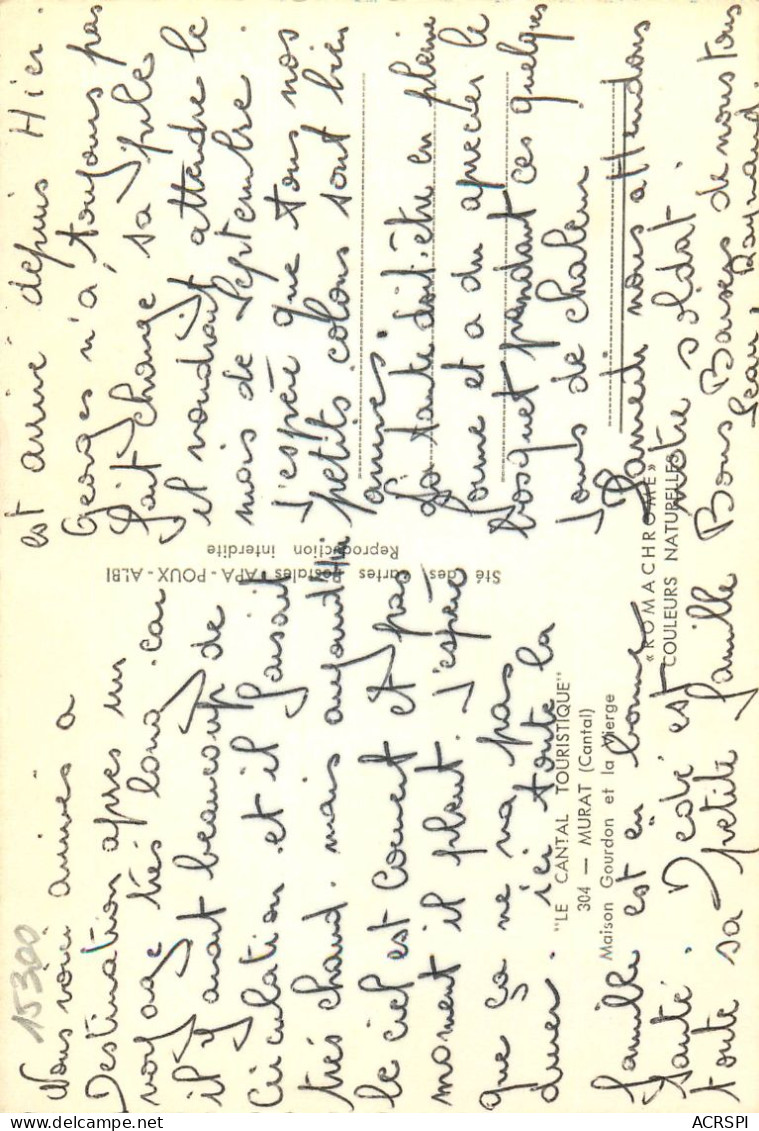 Nous voici arrivés à
Destination apres un
voyage très long car
il y avait beaucoup de
Circulation et il faisait
très chaud. mais aujourd'hui
le ciel est couvert et par
moment il pleut. J'espère
que ça ne va pas
durer. ici toute la
famille est en bonne
santé. Dédé est
toute sa petite famille
est arrivé depuis Hier.
Georges n'a toujours pas
fait change sa pile
il voudrait attendre le
mois de Septembre.
J'espère que tous nos
petits colons sont bien
amusés
La tante doit être en pleine
forme et a du apprecier le
bosquet pendant ces quelques
jours de chaleur
Samedi nous attendons
notre soldat.
Bons Baisers de nous tous
Jean, Raymond.
15300
"LE CANTAL TOURISTIQUE"
304 — MURAT (Cantal)
Maison Gourdon et la Vierge
Sté des Cartes Postales APA-POUX - ALBI
Reproduction interdite
« ROMACHROME »
COULEURS NATURELLES
ACRSPI